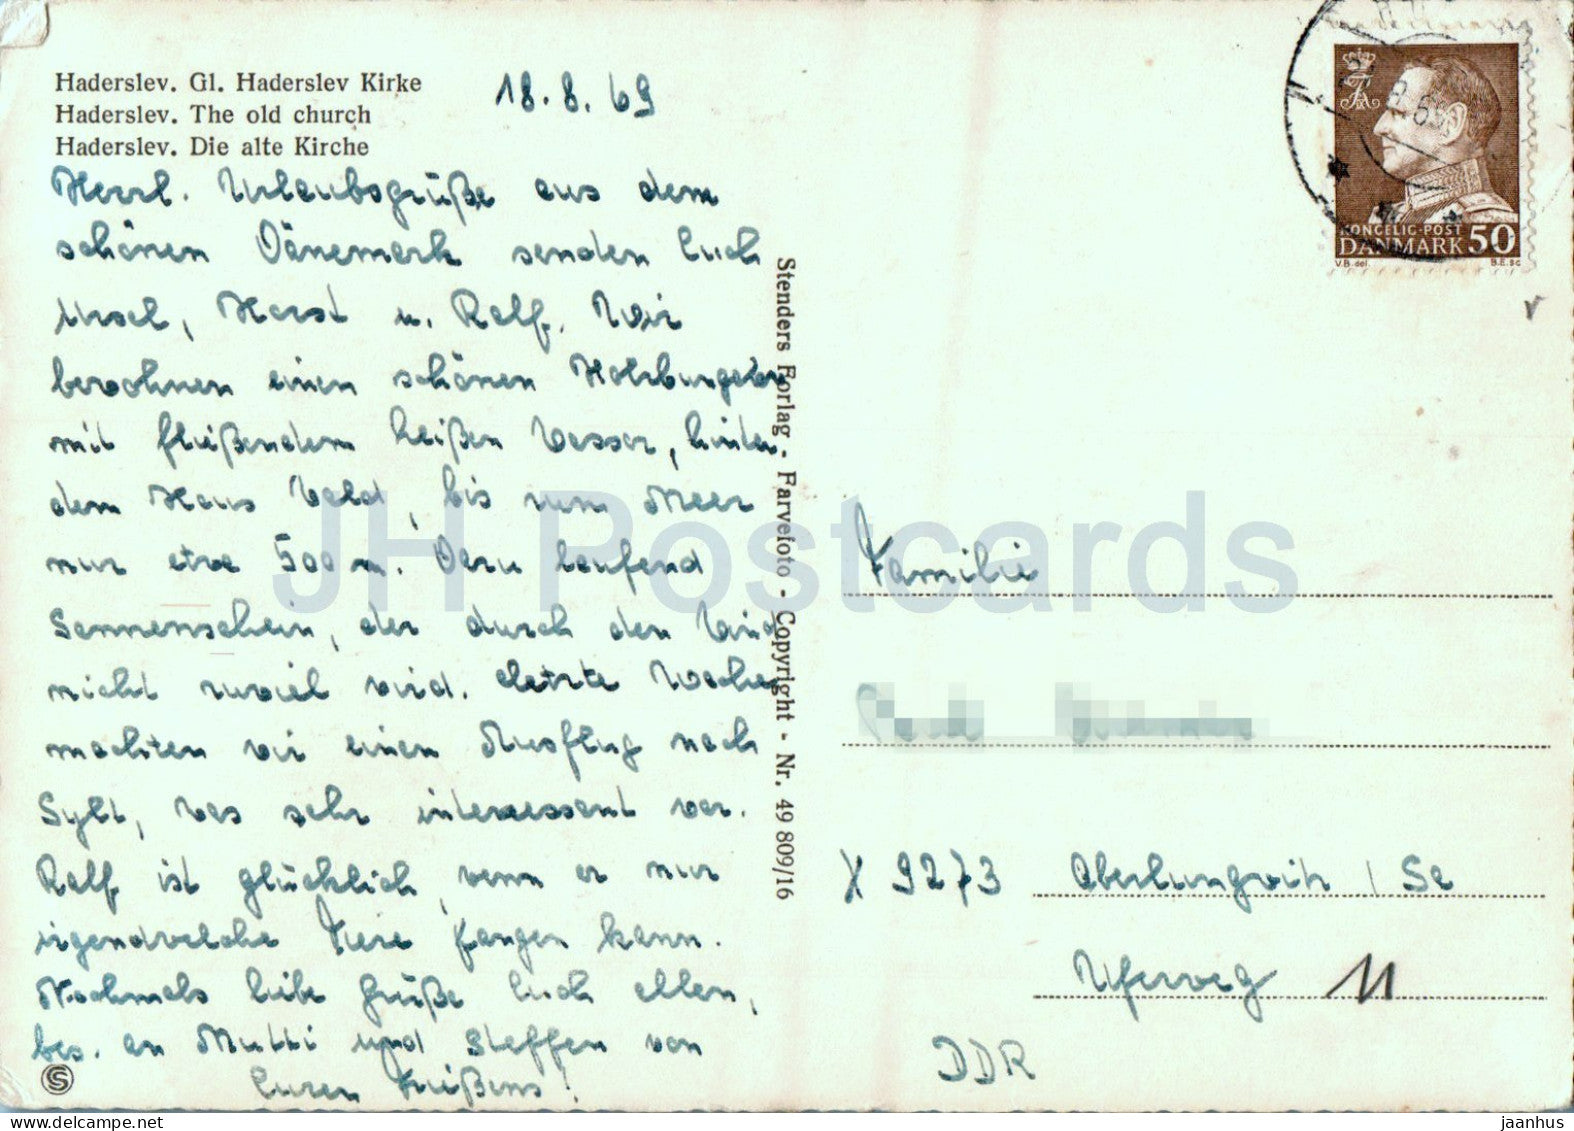 Haderslev. Gl. Haderslev Kirke
Haderslev. The old church
Haderslev. Die alte Kirche
18.8.69
Herzl. Urlaubsgrüße aus dem
schönen Dänemark senden Euch
Ursel, Horst u. Ralf. Wir
bewohnen einen schönen Holzbungalow
mit fließendem heißen Wasser, hinter
dem Haus Wald, bis zum Meer
nur etwa 500 m. Dazu laufend
Sonnenschein, der durch den Wind
nicht zuviel wird. Letzte Woche
machten wir einen Ausflug nach
Sylt, was sehr interessant war.
Ralf ist glücklich, wenn er nur
irgendwelche Tiere fangen kann.
Nochmals liebe Grüße Euch allen,
bes. an Mutti und Steffen von
Euren
S
Stenders Forlag - Farvefoto - Copyright - Nr. 49 809/16
KONGELIG-POST
DANMARK 50
V.B. del.
B.E. sc
Familie
X 9273 Oberlungwitz / Sa
Uferweg 11
DDR
JH Postcards
jaanhus